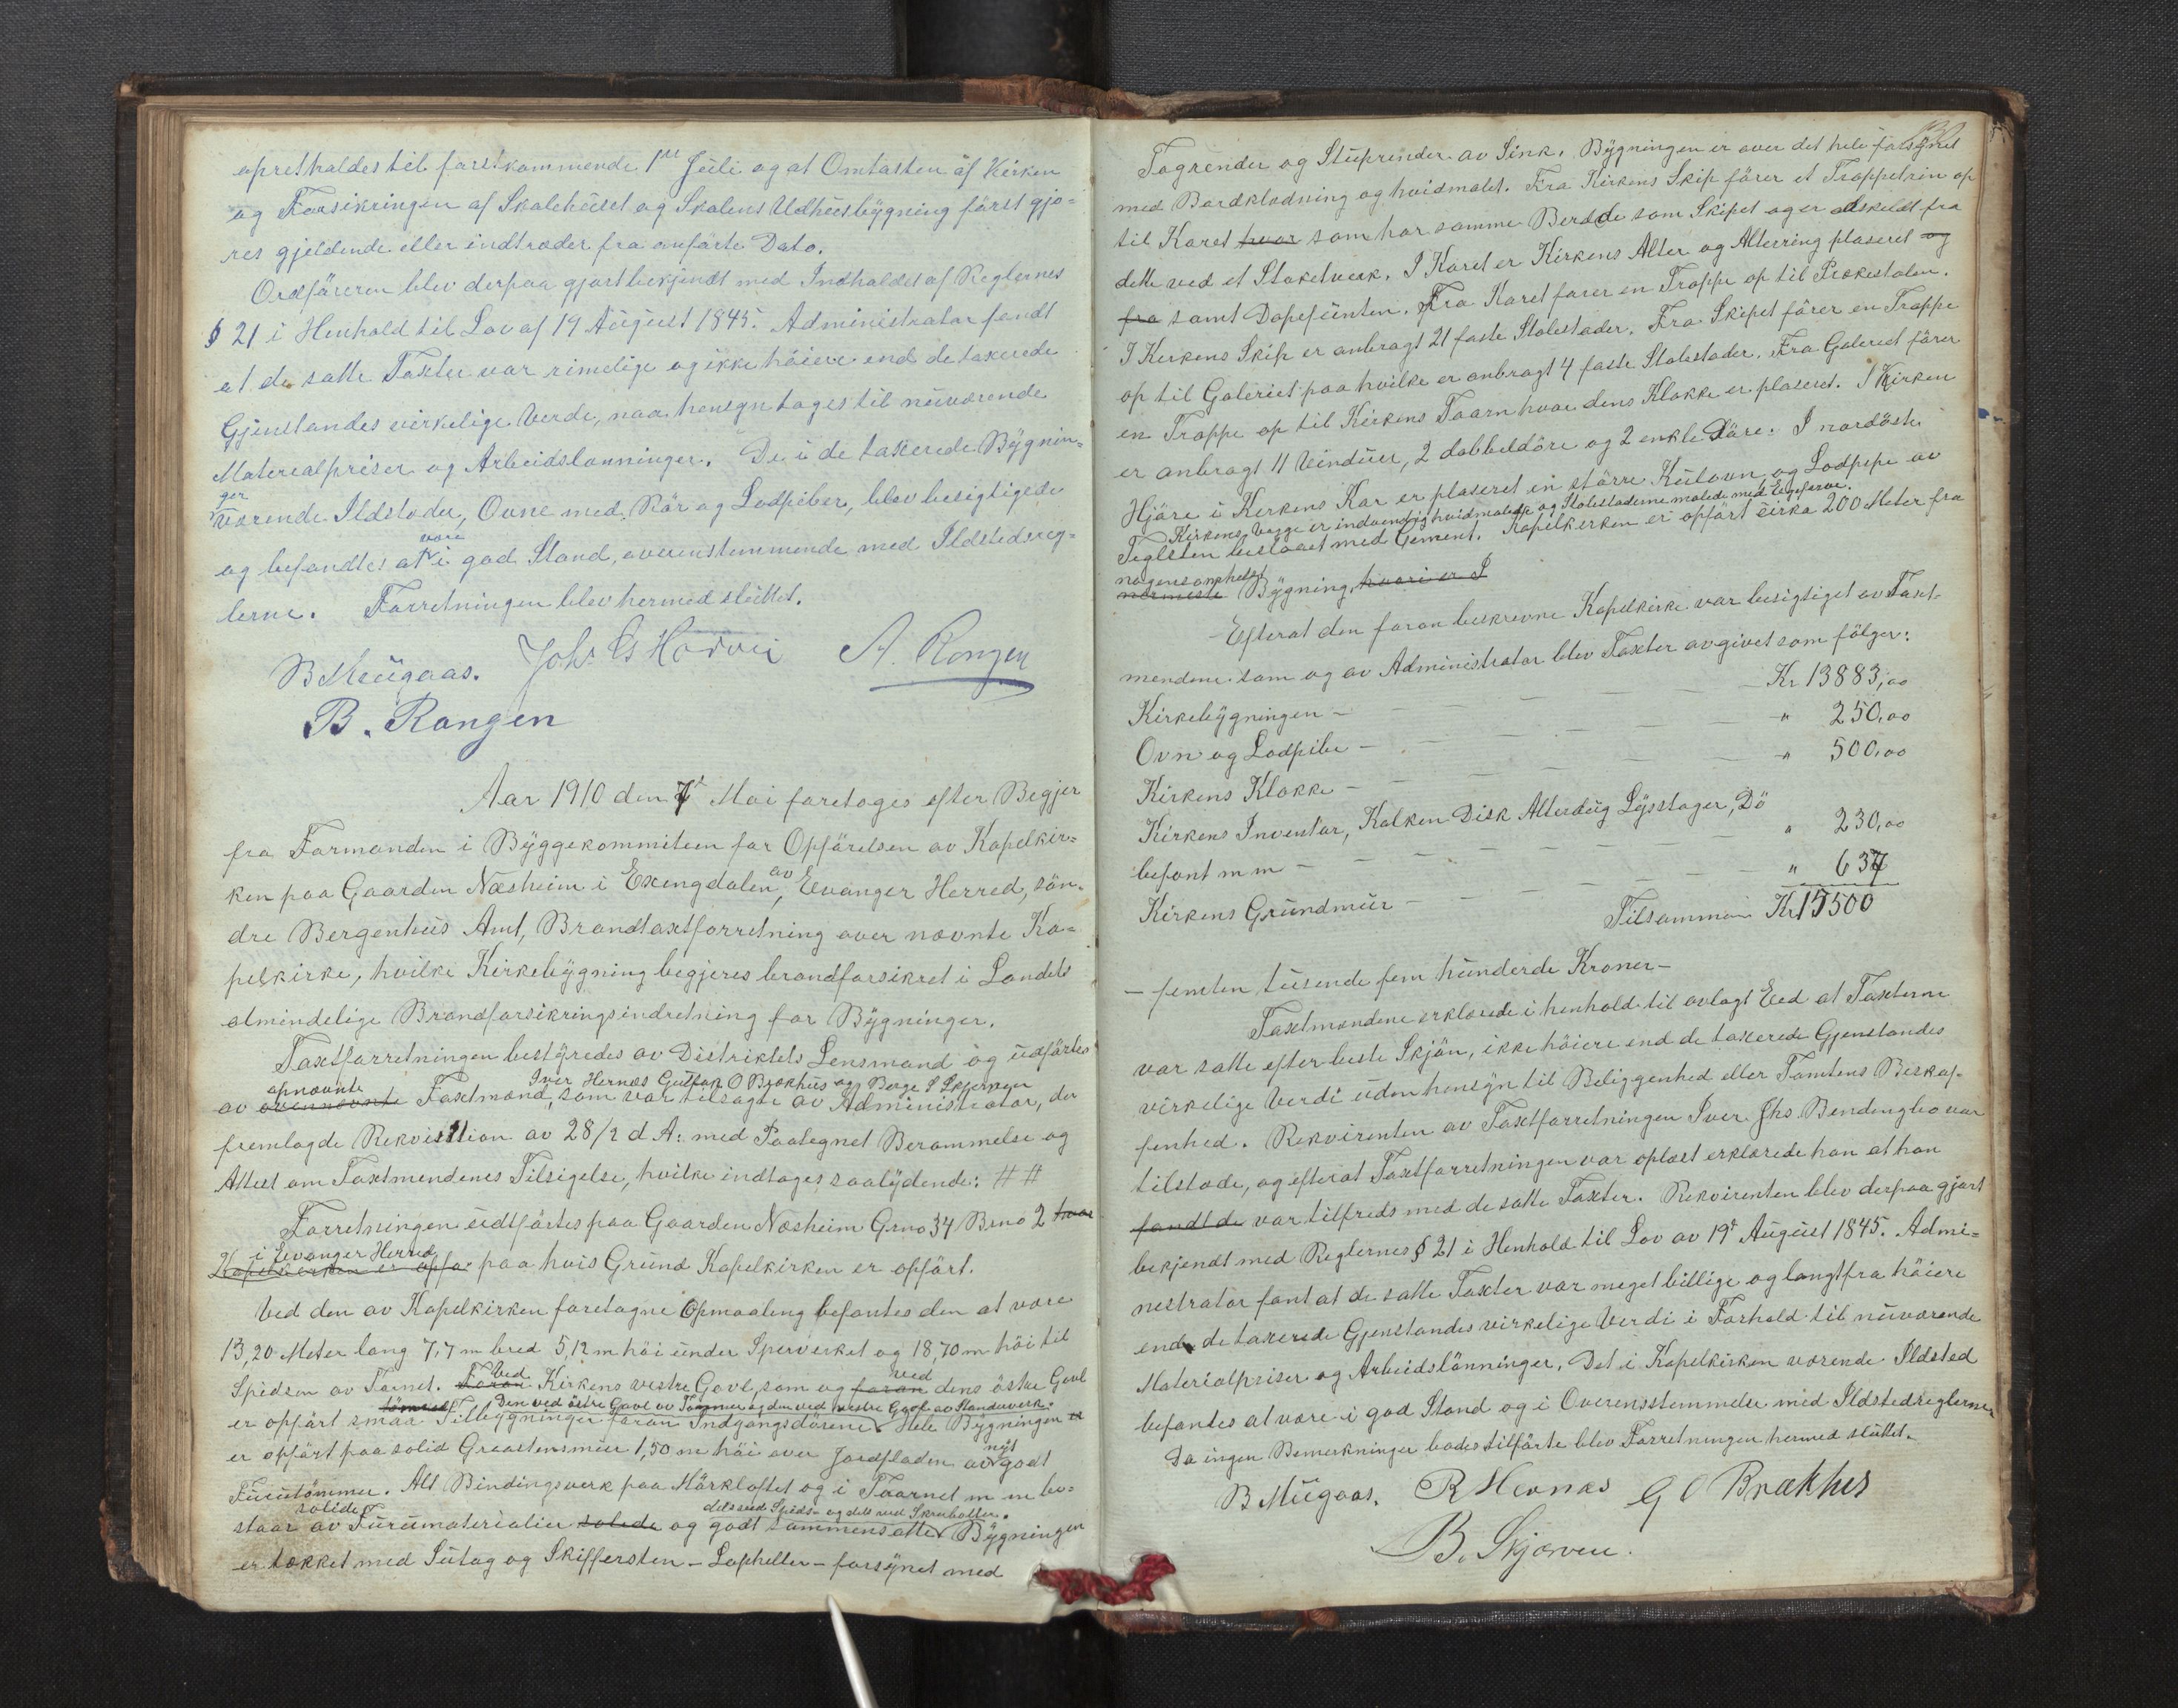 opretholdes til førstkommende 1ste Juli og at Omtaxten af Kirken
og Forsikringen af Skolehuset og Skolens Udhusbygning først gjø-
res gjeldende eller indtræder fra anførte Dato.
Ordføreren blev derpaa gjort bekjendt med Indholdet af Reglernes
§ 21 i Henhold til Lov af 19 August 1845. Administrator fandt
at de satte Taxter var rimelige og ikke høiere end de taxerede
Gjenstandes virkelige Verde, naar hensyn tages til nuværende
Materialpriser og Arbeidslønninger. De i de taxerede Bygnin-
ger
værende Ildsteder, Ovne med Rør og Lodpiber, blev besigtigede
og befandtes at være i god Stand, overenstemmende med Ildstedsreg-
lerne. Forretningen blev hermed sluttet.
B Mügaas. Joh. G Horvei A. Rongen
B. Rongen
Aar 1910 den 7de Mai foretoges efter Begjer
fra Formanden i Byggekommiteen for Opførelsen av Kapelkir-
ken paa Gaarden Næsheim i Exengdalen av Evanger Herred, søn-
dre Bergenhus Amt, Brandtaxtforretning over nævnte Ka-
pelkirke, hvilke Kirkebygning begjeres brandforsikret i Landets
almindelige Brandforsikringsindretning for Bygninger.
Taxtforretningen bestyredes av Distriktets Lensmand og udførtes
opnævnte Iver Hernæs Guttorm O Brækhus og Berge S Skjerven
av ovennævnte Taxtmænd, som var tilsagte av Administrator, der
fremlagde Rekvisition av 28/2 d A: med Paategnet Berammelse og
Attest om Taxtmendenes Tilsigelse, hvilke indtages saalydende: # #
Forretningen udførtes paa Gaarden Næsheim Grno 34 Brno 2 hvor
i Evanger Herred
Kapelkirken er opfø paa hvis Grund Kapelkirken er opført.
Ved den av Kapelkirken foretagne Opmaaling befantes den at være
13,20 Meter lang 7,7 m bred 5,12 m høi under Sperverket og 18,70 m høi til
Spidsen av Tarnet. Foran Ved Kirkens vestre Gavl, som og foran ved dens østre Gavl
Den ved østre Gavl av Tømmer og den ved vestre Gavl av Standerverk.
er opført smaa Tilbygninger foran Indgangsdørene. Hele Bygningen er
er opført paa solid Graastensmur 1,50 m høi over Jordfladen av nyt godt
Furutømmer. Alt Bindingsverk paa Mørkloftet og i Taarnet m m be-
solide dels ved Spids- og dels ved Skruebolter.
staar av Furumaterialier solide og godt sammensatte Bygningen
er tækket med Sutag og Skiffersten - Lapheller - forsynet med
130
Tagrender og Stuprender av Sink. Bygningen er over det hele forsynet
med Bordklædning og hvidmalet. Fra Kirkens Skip fører et Trappetrin op
til Koret hvor som har samme Bredde som Skipet og er adskeldt fra
dette ved et Staketverk. I Koret er Kirkens Alter og Alterring plaseret og
fra samt Døpefunten. Fra Koret fører en Trappe op til Prækestolen.
I Kirkens Skip er anbragt 21 faste Stolestader. Fra Skipet fører en Trappe
op til Galeriet paa hvilke er anbragt 4 faste Stolestader. Fra Galeriet fører
en Trappe op til Kirkens Taarn hvor dens Klokke er plaseret. I Kirken
er anbragt 11 Vinduer, 2 dobbeldøre og 2 enkle Døre. I nordøste
Hjøre i Kirkens Kor er plaseret en større Kulovn og Lodpipe av
Kirkens Vægge er indvendig hvidmalede og Stolestaderne malede med Egefarve.
Teglsten beslaaet med Cement. Kapelkirken er opført cirka 200 Meter fra
nogensomhelst
nærmeste Bygning, hvori er I
Efterat den foran beskrevne Kapelkirke var besigtiget av Taxt-
mendene som og av Administrator blev Taxter avgivet som følger:
Kirkebygningen — Kr 13883,00
Ovn og Lodpibe — " 250,00
Kirkens Klokke — " 500,00
Kirkens Inventar, Kalken Disk Alterdug Lysstager, Dø
befont m m — " 230,00
Kirkens Grundmur — " 637
Tilsammen Kr 15500
— femten tusende fem hunderde Kroner —
Taxtmendene erklærede i henhold til avlagt Eed at Taxterne
var satte efter beste Skjøn, ikke høiere end de taxerede Gjenstandes
virkelige Verdi uden hensyn til Beliggenhed eller Tomtens Beskaf-
fenhed. Rekvirenten av Taxtforretningen Iver Jhs. Bendengbo var
tilstede, og efterat Taxtforretningen var oplæst erklærede han at han
fandt de var tilfreds med de satte Taxter. Rekvirenten blev derpaa gjort
bekjendt med Reglernes § 21 i Henhold til Lov av 19de August 1845. Admi-
nestrator fant at de satte Taxter var meget billige og langtfra høiere
end de taxerede Gjenstandes virkelige Verdi i Forhold til nuværende
Materialpriser og Arbeidslønninger. Det i Kapelkirken værende Ildsted
befantes at være i god Stand og i Overensstemmelse med Ildstedreglerne.
Da ingen Bemerkninger bødes tilførte blev Forretningen hermed sluttet.
B Mügaas. R Hernæs G O Brækhus
B. Skjerven.